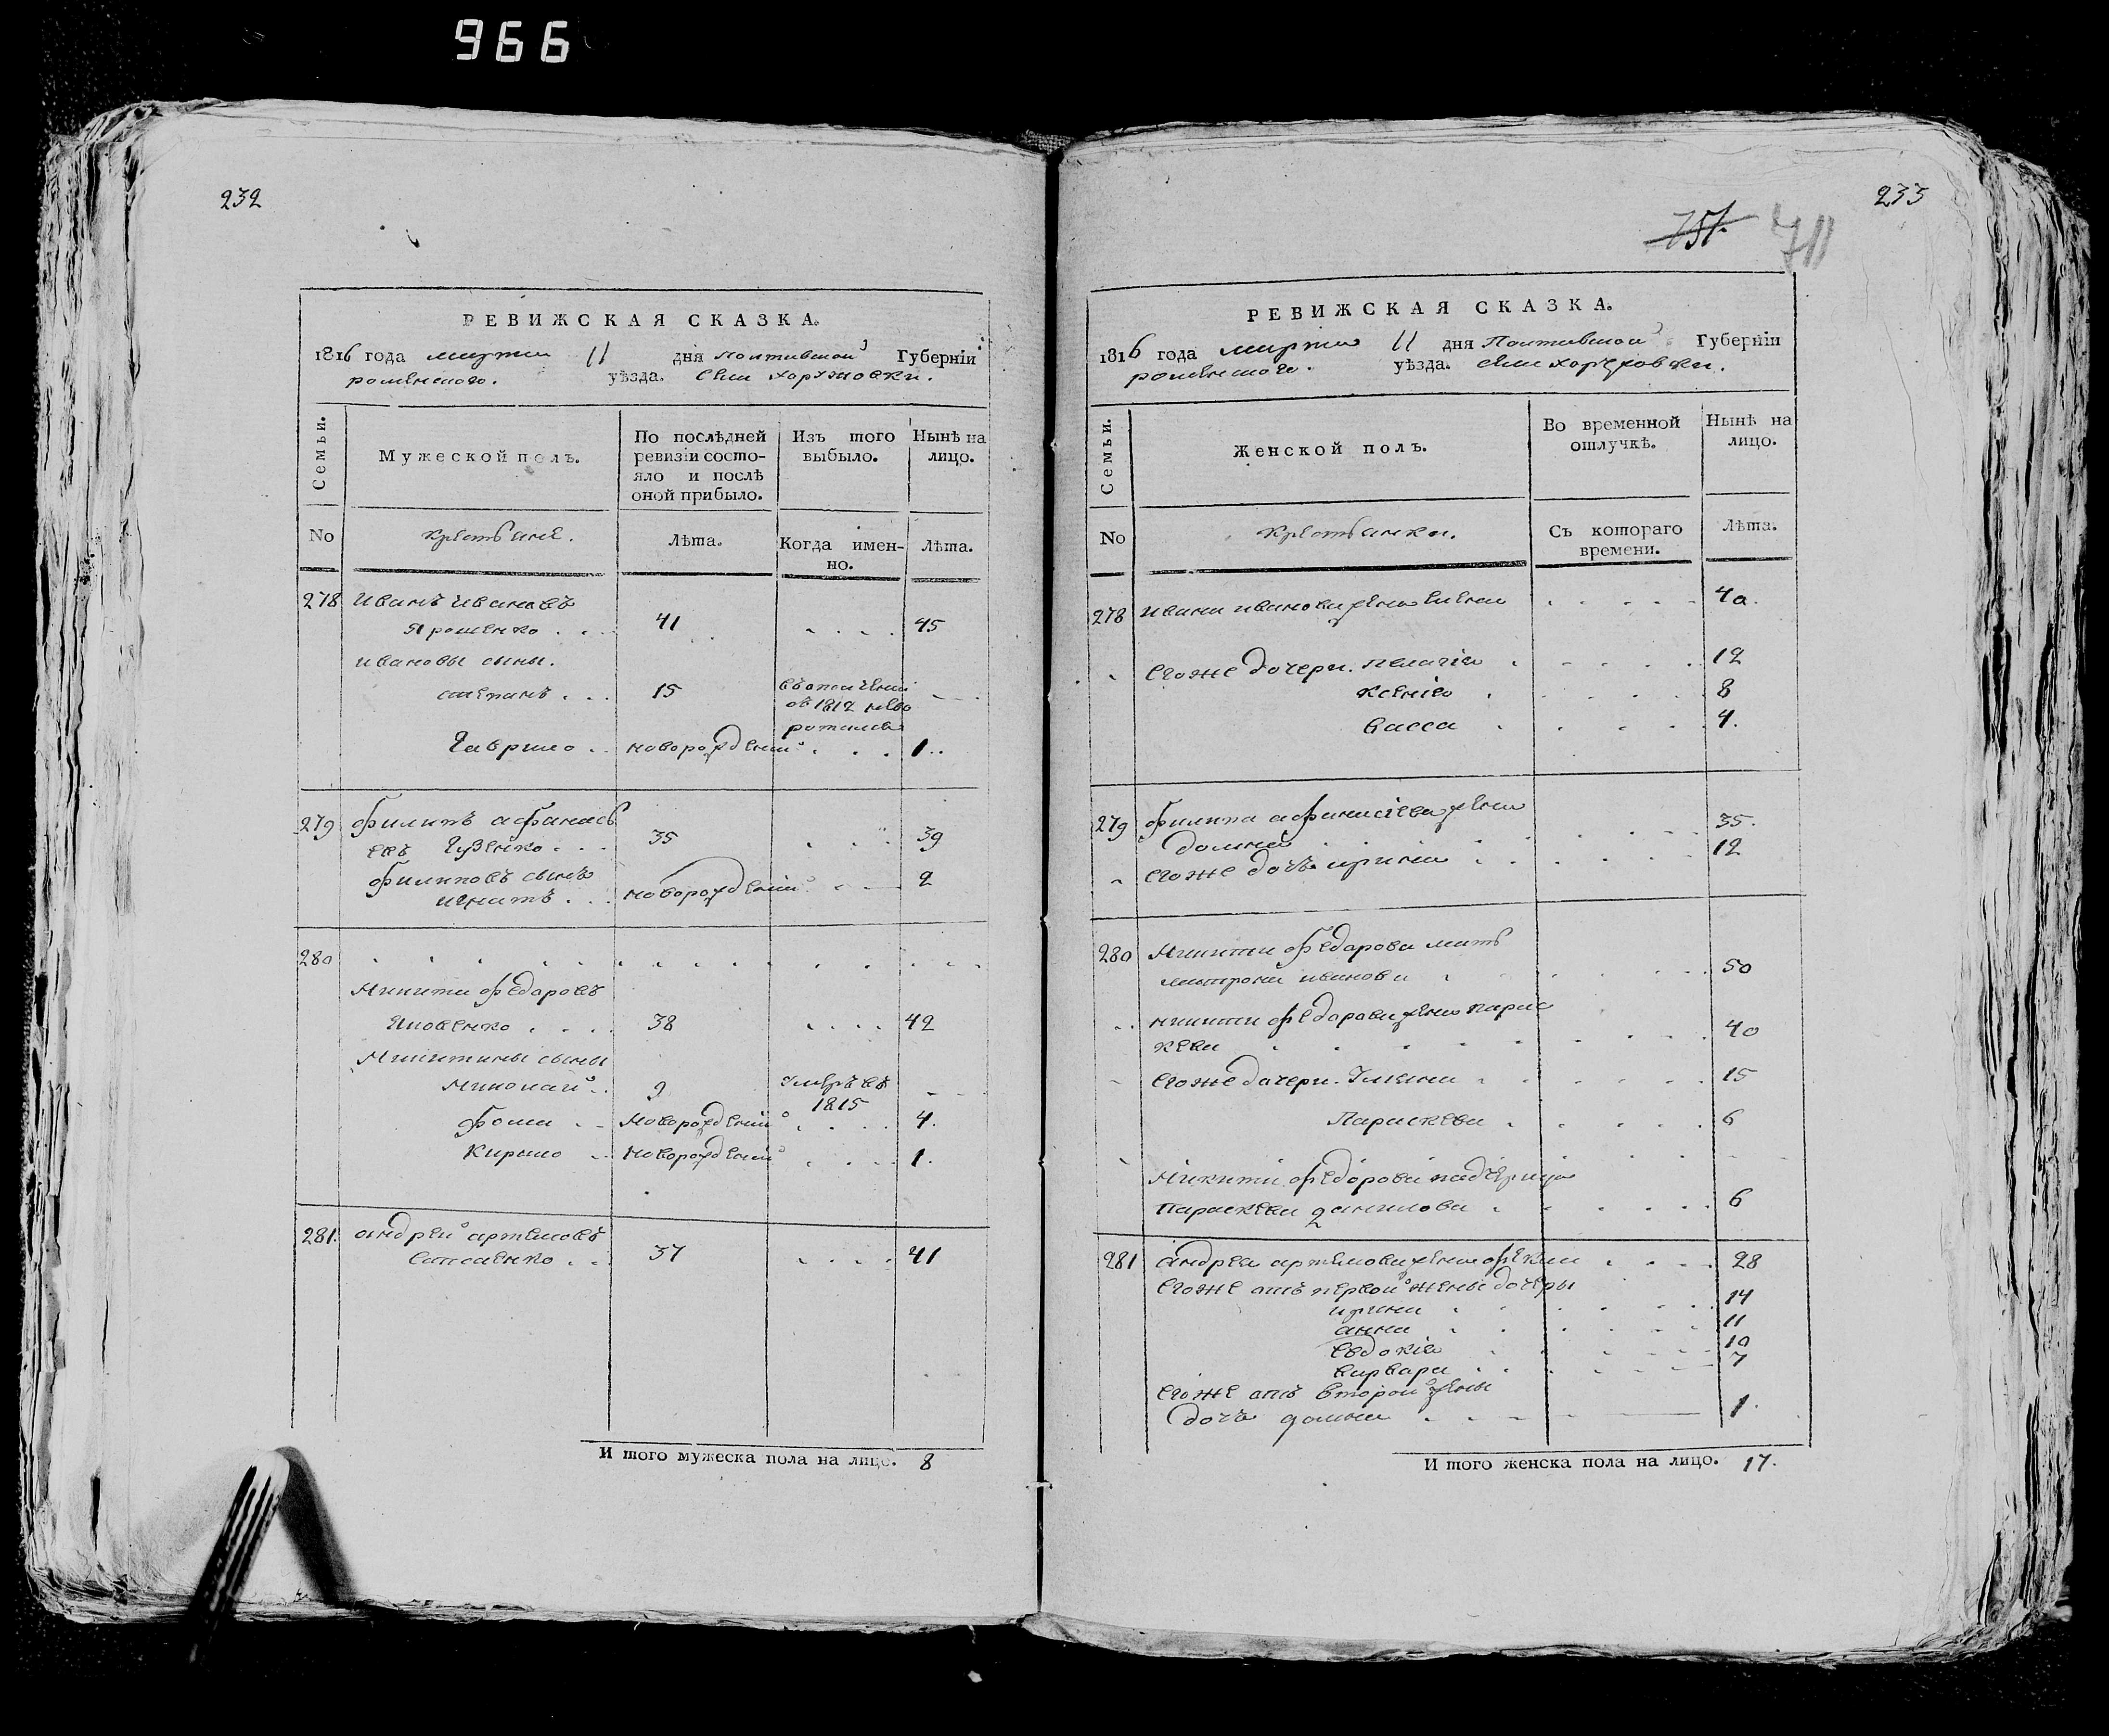 966
232
РЕВИЖСКАЯ СКАЗКА.
1816 года марта 11 дня Полтавской Губерніи
роменского. уѣзда. села харжовки.
Семьи.
Мужеской полъ.
По послѣдней ревизіи состо-
яло и послѣ
оной прибыло.
Изъ того
выбыло.
Нынѣ на
лицо.
No
крестьяне.
Лѣта.
Когда имен-
но.
Лѣта.
278 Иванъ Ивановъ
Ярошенко . . . 41 . . . . 45
ивановы сыны.
степанъ . . . 15 въ ополчении
с 1812
Гаврило . . новорожденій . . . 1 . .
279 Филипъ афанась
евъ Гузенко . . . 35 . . . 39
филиповъ сынъ
игнатъ . . . новорожденій . . 2
280
Никита федоровъ
Яковенко . . . . 38 . . . . 42
Никитины сыны
Николай . . 9 умеръ въ
1815
фома . . Новорожденій . . . . 4.
Кирило . . Новорожденій . . . . 1.
281. андрей артемовъ
. . . 37 . . . . 41
И того мужеска пола на лицо. 8
233
751. 711
РЕВИЖСКАЯ СКАЗКА.
1816 года марта 11 дня Полтавской Губерніи
роменского. уѣзда. села
Семьи.
Женской полъ.
Во временной
отлучкѣ.
Нынѣ на
лицо.
No
крестьянки.
Съ котораго
времени.
Лѣта.
278 ивана иванова жена елена . . . . . 40.
егоже дочери. пелагія . . . . . 12
ксенія . . . . . 8
васса . . . . . 4.
279 филипа афанасіева жена
домна . . . . 35.
егоже дочь ирина . . . . . 12
280 Никити федорова мать
матрона иванова . . . . . 50
никити федорова жена парас
кева . . . . . 40
егоже дочери. Уляна . . . . . 15
Параскева . . . . . 6
Никити федорова падчерица
параскева данилова . . . . . 6
281 андрея артемова жена фекла . . . . 28
егоже отъ первой жены дочеры
ирина . . . . . 14
анна . . . . . 11
евдокія . . . . . 10
варвара . . . . . 7
егоже отъ второй жены
дочь домна . . . . 1.
И того женска пола на лицо. 17.